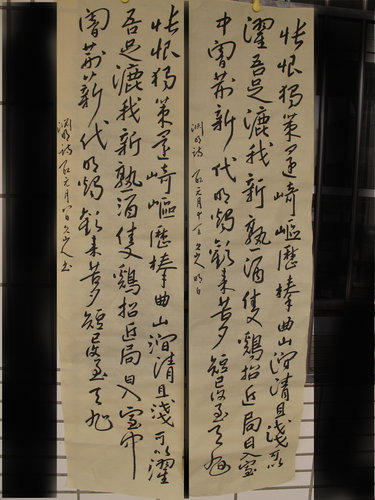 悵恨獨策還崎嶇歷榛曲山澗清且淺可以
濯吾足漉我新熟酒隻鷄招近局日入室
中闇荊薪代明燭歡來苦夕短已復至天旭
淵明詩 元月十
悵恨獨策還崎嶇歷榛曲山澗清且淺可以濯
吾足漉我新熟酒隻鷄招近局日入室中
闇荊薪代明燭歡來苦夕短已復至天旭
淵明詩 元月